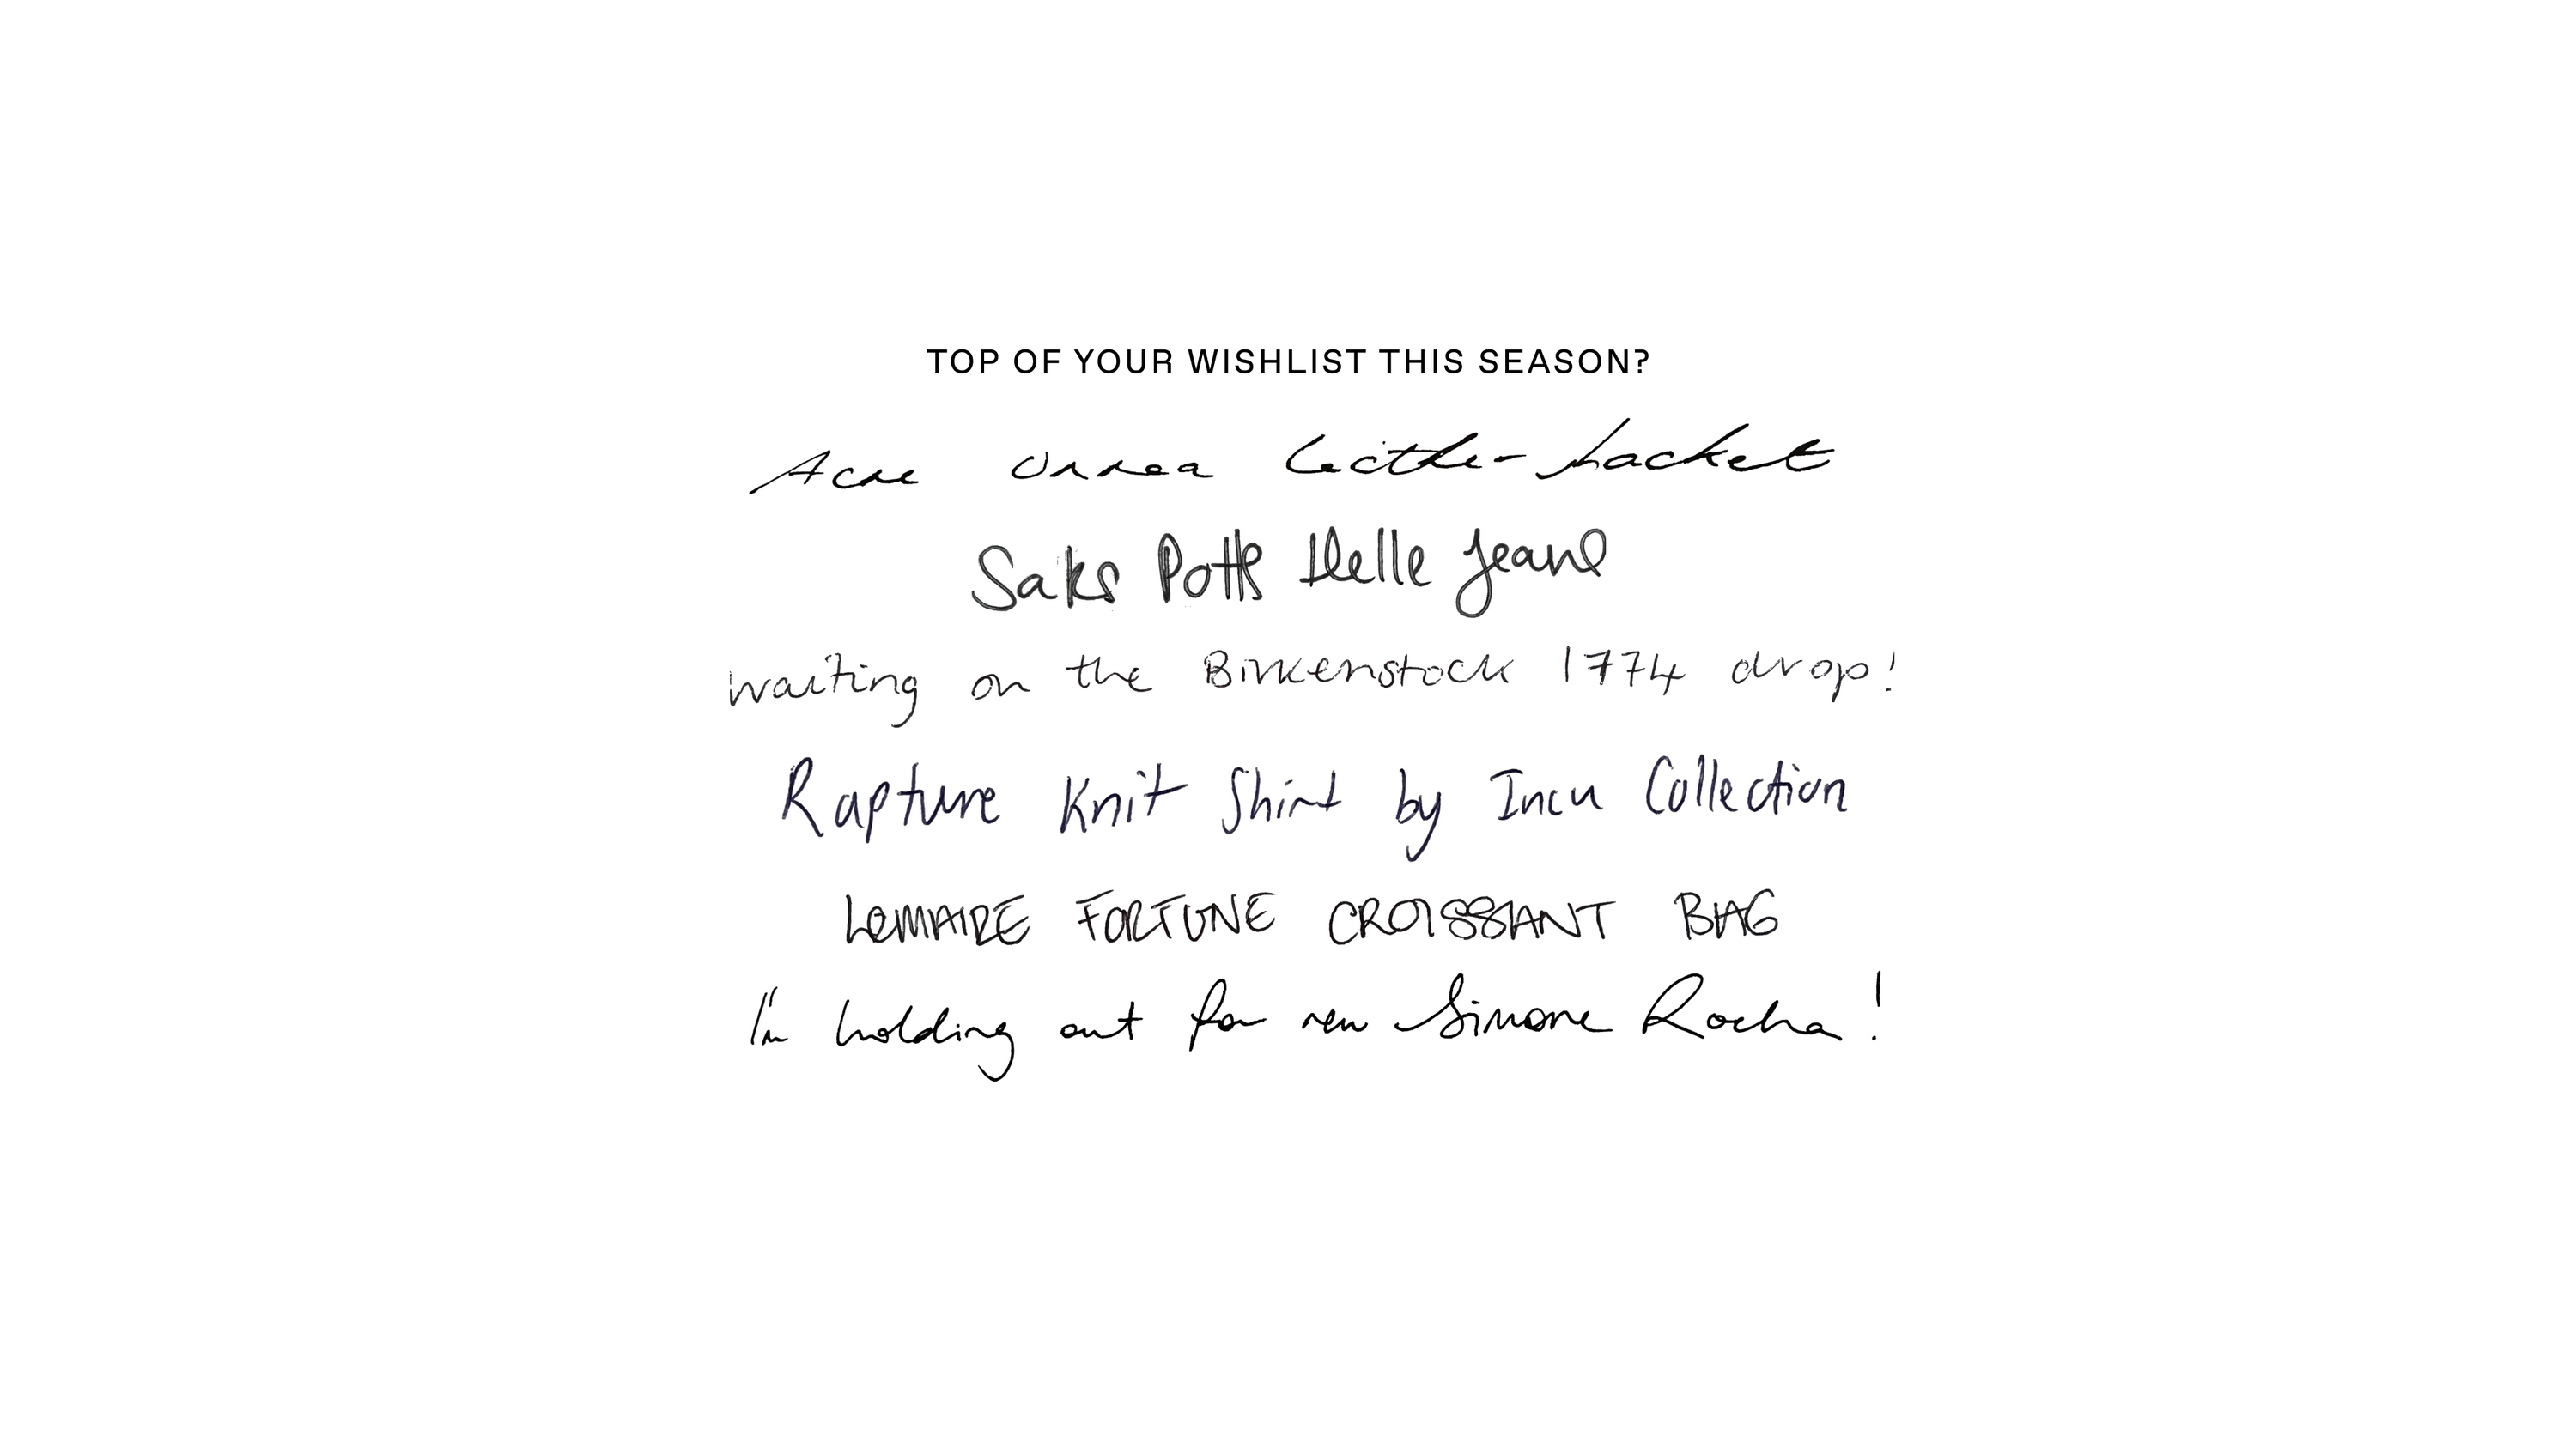 TOP OF YOUR WISHLIST THIS SEASON?
Acne Leather Jacket
Saks Potts Helle Jeans
waiting on the Birkenstock 1774 drop!
Rapture Knit Shirt by Incu Collection
LEMAIRE FORTUNE CROISSANT BAG
I'm holding out for new Simone Rocha!